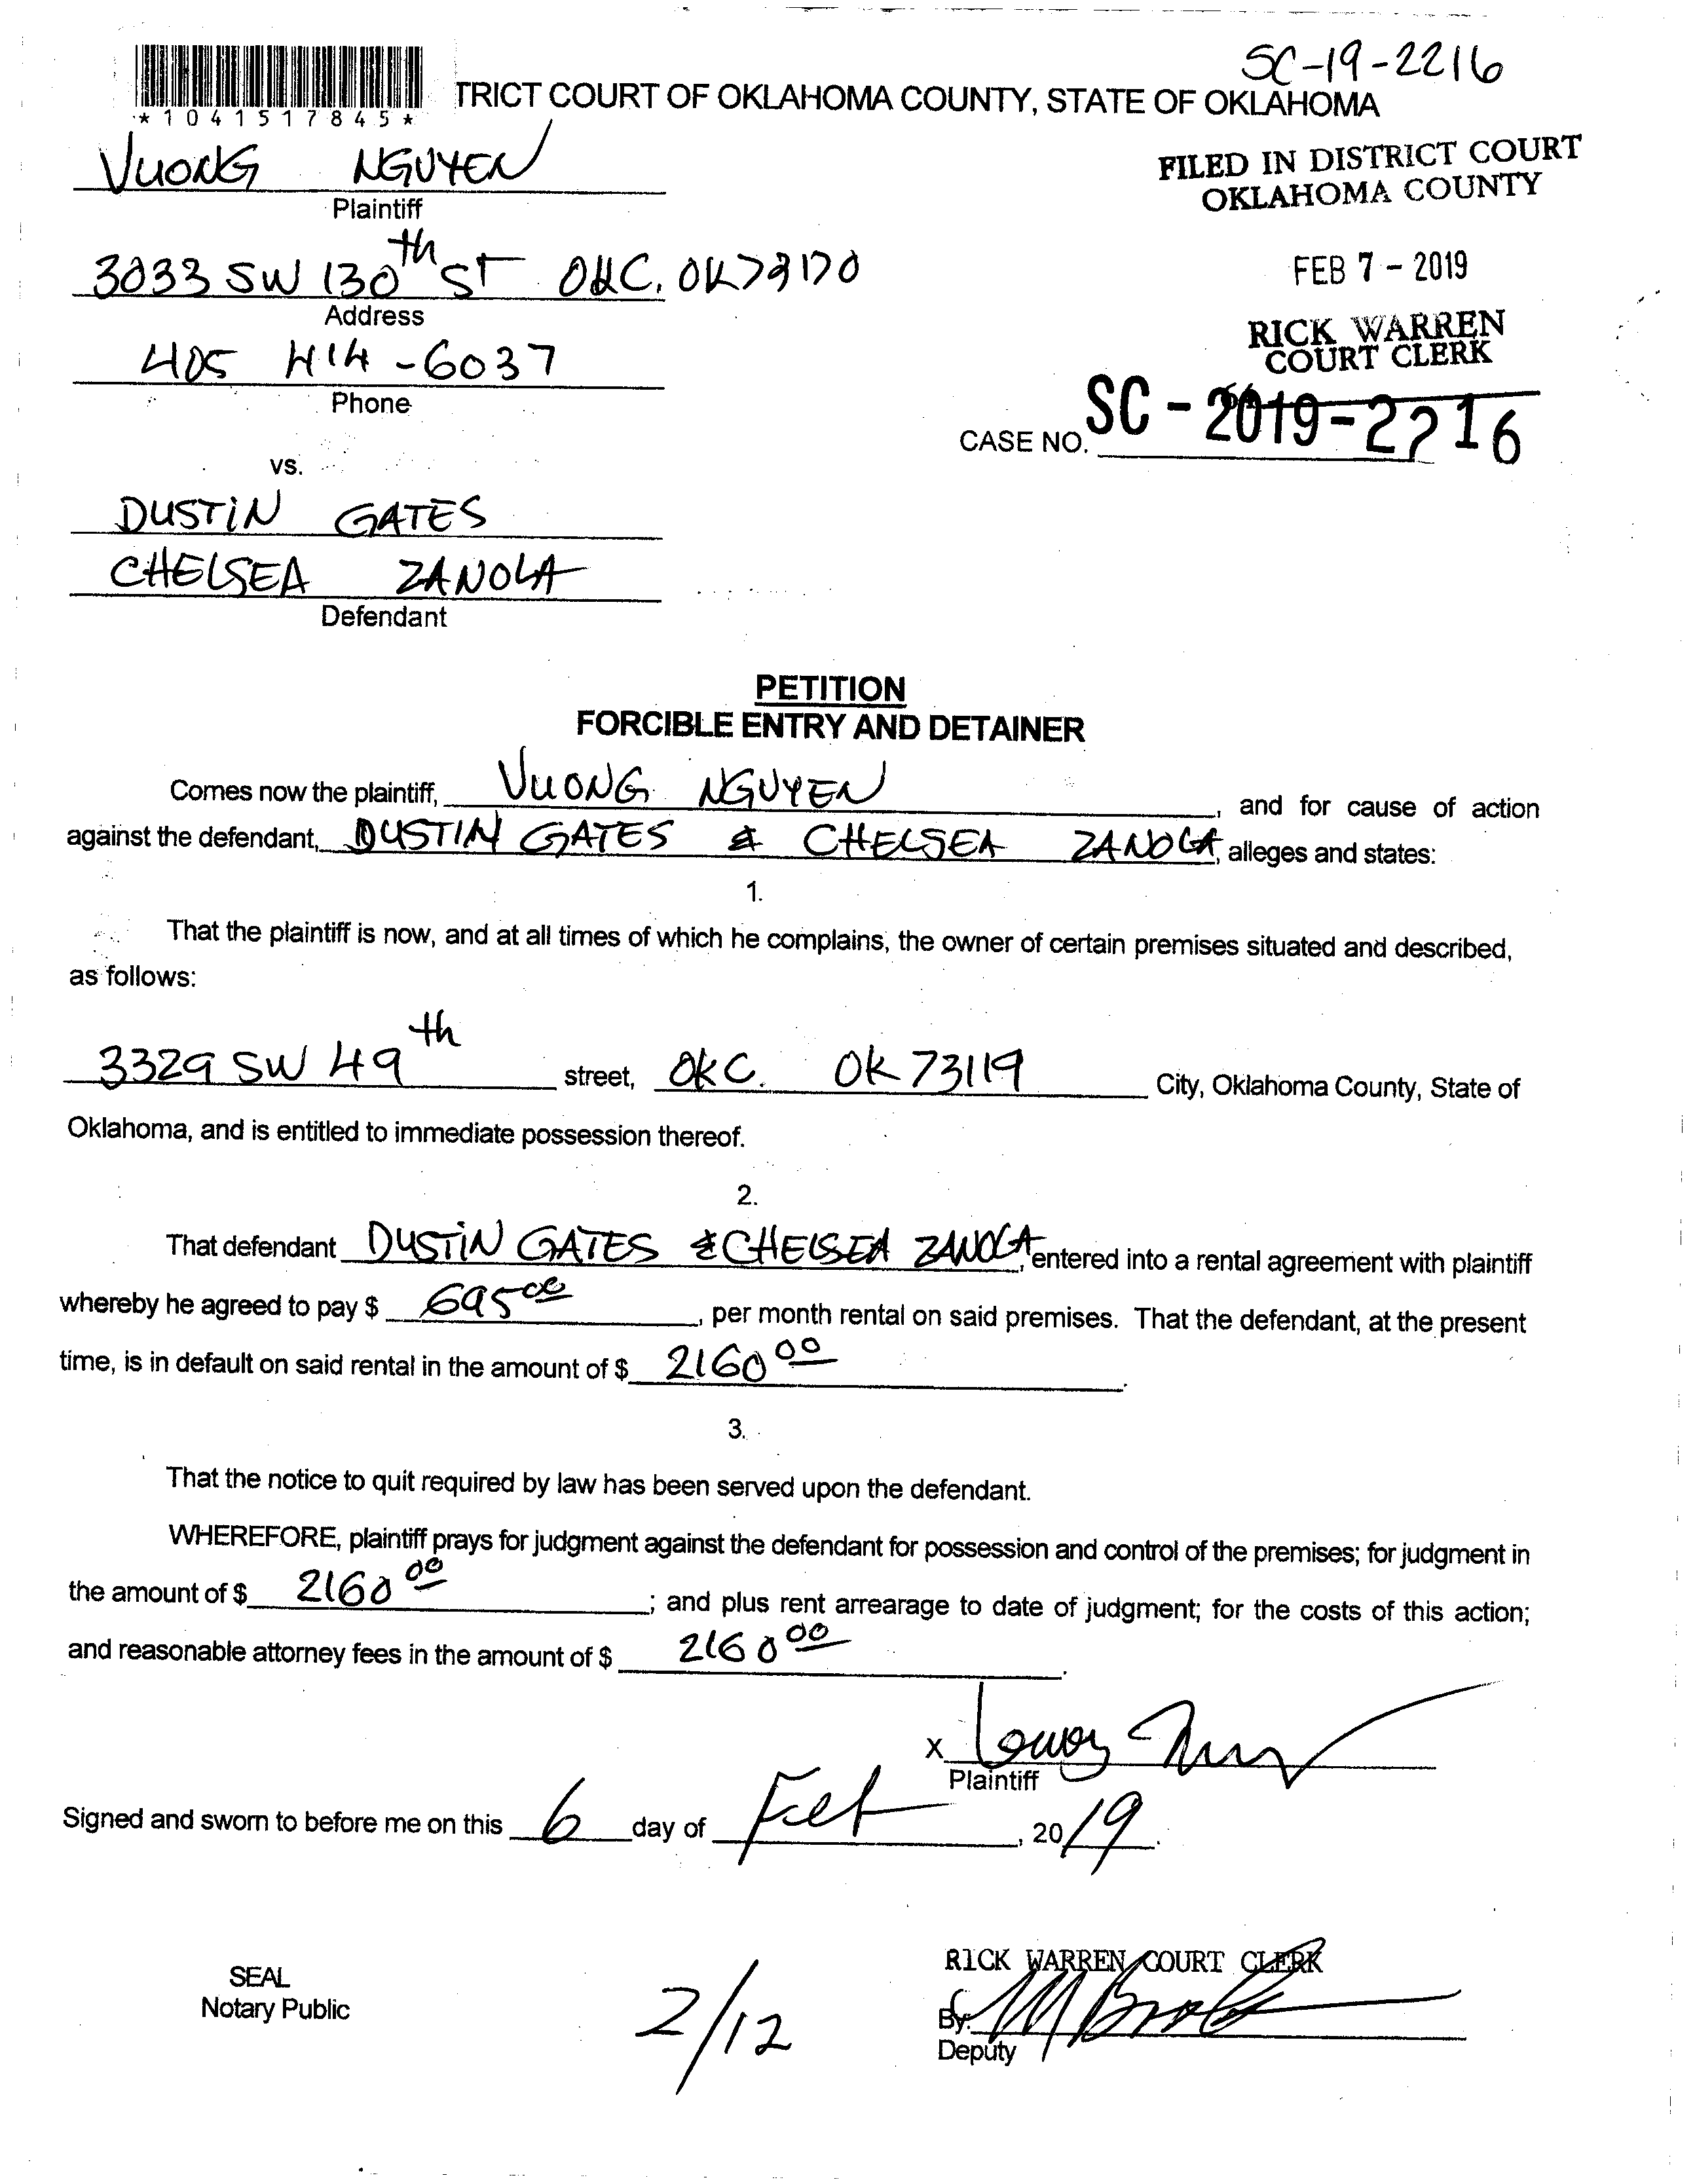 SC-19-2216
*1041517845*
TRICT COURT OF OKLAHOMA COUNTY, STATE OF OKLAHOMA
VUONG NGUYEN
Plaintiff
FILED IN DISTRICT COURT
OKLAHOMA COUNTY
3033 SW 130th ST OKC, OK 73170
Address
FEB 7 - 2019
405 414-6037
Phone
RICK WARREN
COURT CLERK
CASE NO. SC - 2019-2216
vs.
DUSTIN GATES
CHELSEA ZANOLA
Defendant
PETITION
FORCIBLE ENTRY AND DETAINER
Comes now the plaintiff, VUONG NGUYEN, and for cause of action
against the defendant, DUSTIN GATES & CHELSEA ZANOLA, alleges and states:
1.
That the plaintiff is now, and at all times of which he complains, the owner of certain premises situated and described,
as follows:
3329 SW 49th street, OKC. OK 73119 City, Oklahoma County, State of
Oklahoma, and is entitled to immediate possession thereof.
2.
That defendant DUSTIN GATES & CHELSEA ZANOLA, entered into a rental agreement with plaintiff
whereby he agreed to pay $ 695 00, per month rental on said premises. That the defendant, at the present
time, is in default on said rental in the amount of $ 2160 00.
3.
That the notice to quit required by law has been served upon the defendant.
WHEREFORE, plaintiff prays for judgment against the defendant for possession and control of the premises; for judgment in
the amount of $ 2160 00; and plus rent arrearage to date of judgment; for the costs of this action;
and reasonable attorney fees in the amount of $ 2160 00.
X
Plaintiff
Signed and sworn to before me on this 6 day of Feb, 20 19.
RICK WARREN COURT CLERK
SEAL
Notary Public
2/12
By:
Deputy